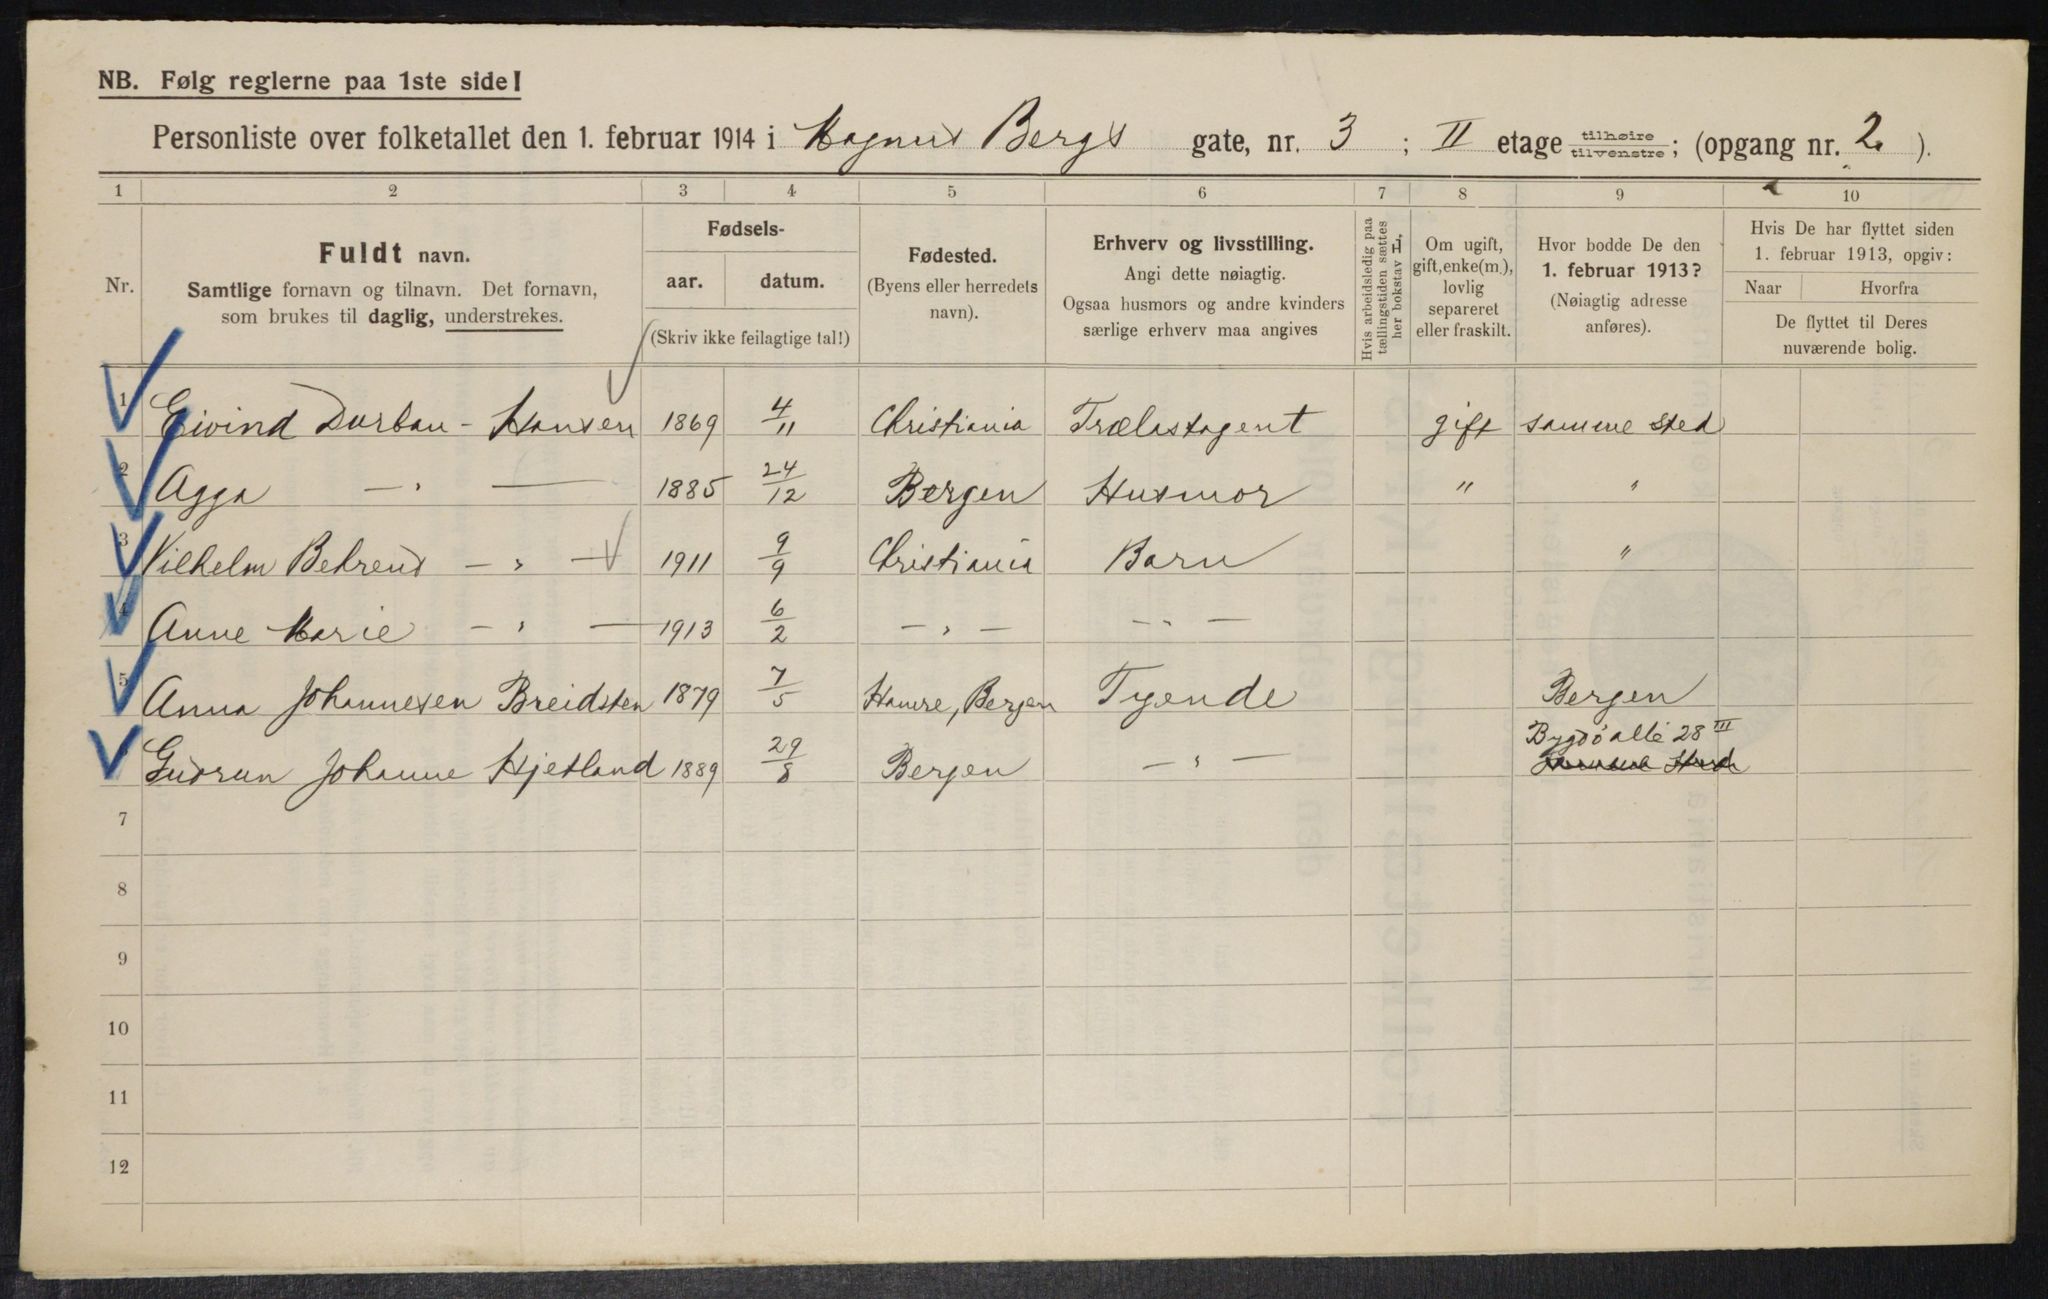 NB. Følg reglerne paa 1ste side!
Personliste over folketallet den 1. februar 1914 i Magnus Bergs gate, nr. 3 ; II etage tilhøire tilvenstre; (opgang nr. 2. ).
1 2 3 4 5 6 7 8 9 10
Nr.
Fuldt navn.
Samtlige fornavn og tilnavn. Det fornavn,
som brukes til daglig, understrekes.
Fødsels-
aar. datum.
(Skriv ikke feilagtige tal!)
Fødested.
(Byens eller herredets
navn).
Erhverv og livsstilling.
Angi dette nøiagtig.
Ogsaa husmors og andre kvinders
særlige erhverv maa angives
Hvis arbeidsledig paa
tællingstiden sættes
her bokstav H.
Om ugift,
gift, enke(m.),
lovlig
separeret
eller fraskilt.
Hvor bodde De den
1. februar 1913?
(Nøiagtig adresse
anføres).
Hvis De har flyttet siden
1. februar 1913, opgiv:
Naar Hvorfra
De flyttet til Deres
nuværende bolig.
1 Eivind Durban - Hansen 1869 4/11 Christiania Trælastagent gift samme sted
2 Agga — " — 1885 24/12 Bergen Husmor " "
3 Vilhelm Behrend — " — 1911 9/9 Christiania Barn "
4 Anne Marie — " — 1913 6/2 — " — — " —
5 Anna Johannesen Breidsten 1879 7/5 Hamre, Bergen Tyende Bergen
Bygdø allé 28 III
6 Gudrun Johanne Hjetland 1889 29/8 Bergen — " — samme sted
7
8
9
10
11
12